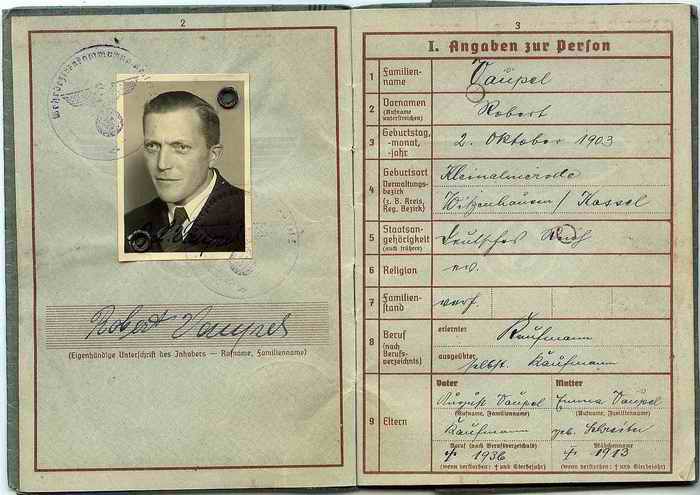 2
Robert Vaupel
(Eigenhändige Unterschrift des Inhabers — Rufname, Familienname)
3
I. Angaben zur Person
1 Familien-
name
Vaupel
2 Vornamen
(Rufname
unterstreichen)
Robert
3 Geburtstag,
-monat,
-jahr
2. Oktober 1903
4 Geburtsort
Verwaltungs-
bezirk
(z. B. Kreis,
Reg. Bezirk)
Kleinalmerode
Witzenhausen / Kassel
5 Staatsan-
gehörigkeit
(auch frühere)
Deutsches Reich
6 Religion
ev.
7 Familien-
stand
verh.
8 Beruf
(nach
Berufs-
verzeichnis)
erlernter
Kaufmann
ausgeübter
selbst. Kaufmann
9 Eltern
Vater
August Vaupel
(Rufname, Familienname)
Kaufmann
Beruf (nach Berufsverzeichnis)
† 1936
(wenn verstorben: † und Sterbejahr)
Mutter
Emma Vaupel
(Rufname, Familienname)
geb.
Mädchenname
† 1913
(wenn verstorben: † und Sterbejahr)